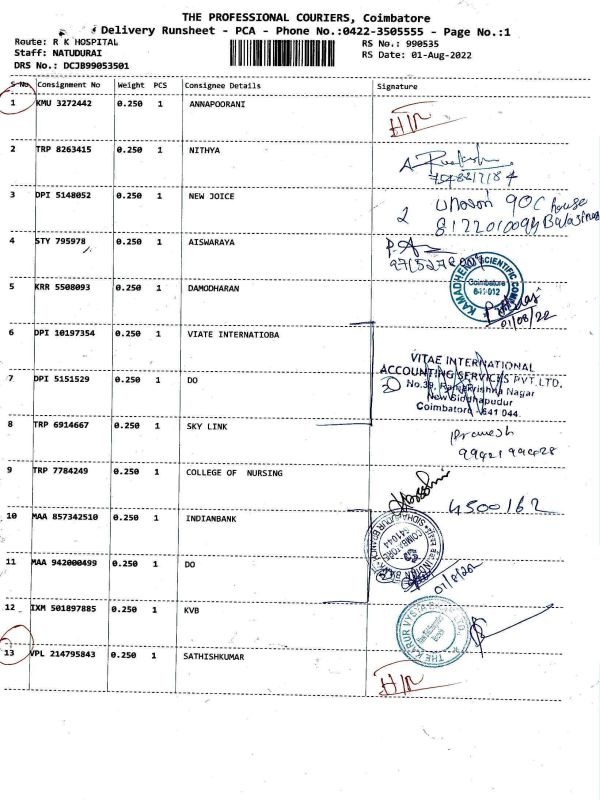 THE PROFESSIONAL COURIERS, Coimbatore
Delivery Runsheet - PCA - Phone No.:0422-3505555 - Page No.:1
Route: R K HOSPITAL
RS No.: 990535
Staff: NATUDURAI
RS Date: 01-Aug-2022
DRS No.: DCJB99053501
S No Consignment No Weight PCS Consignee Details Signature
1 KMU 3272442 0.250 1 ANNAPOORANI
2 TRP 8263415 0.250 1 NITHYA
3 DPI 5148052 0.250 1 NEW JOICE
2 90C house
4 STY 795978 0.250 1 AISWARAYA
5 KRR 5508093 0.250 1 DAMODHARAN
SCIENTIFIC
Coimbatore
01/08/22
6 DPI 10197354 0.250 1 VIATE INTERNATIOBA
VITAE INTERNATIONAL
ACCOUNTING SERVICES PVT.LTD.
7 DPI 5151529 0.250 1 DO
No.39, Ramakrishna Nagar
New Siddhapudur
Coimbatore - 641 044.
8 TRP 6914667 0.250 1 SKY LINK
9 TRP 7784249 0.250 1 COLLEGE OF NURSING
4500162
10 MAA 857342510 0.250 1 INDIANBANK
COIMBATORE
641044
INDIAN BANK
11 MAA 942000499 0.250 1 DO
12 IXM 501897885 0.250 1 KVB
THE KARUR VYSYA BANK LTD
13 VPL 214795843 0.250 1 SATHISHKUMAR